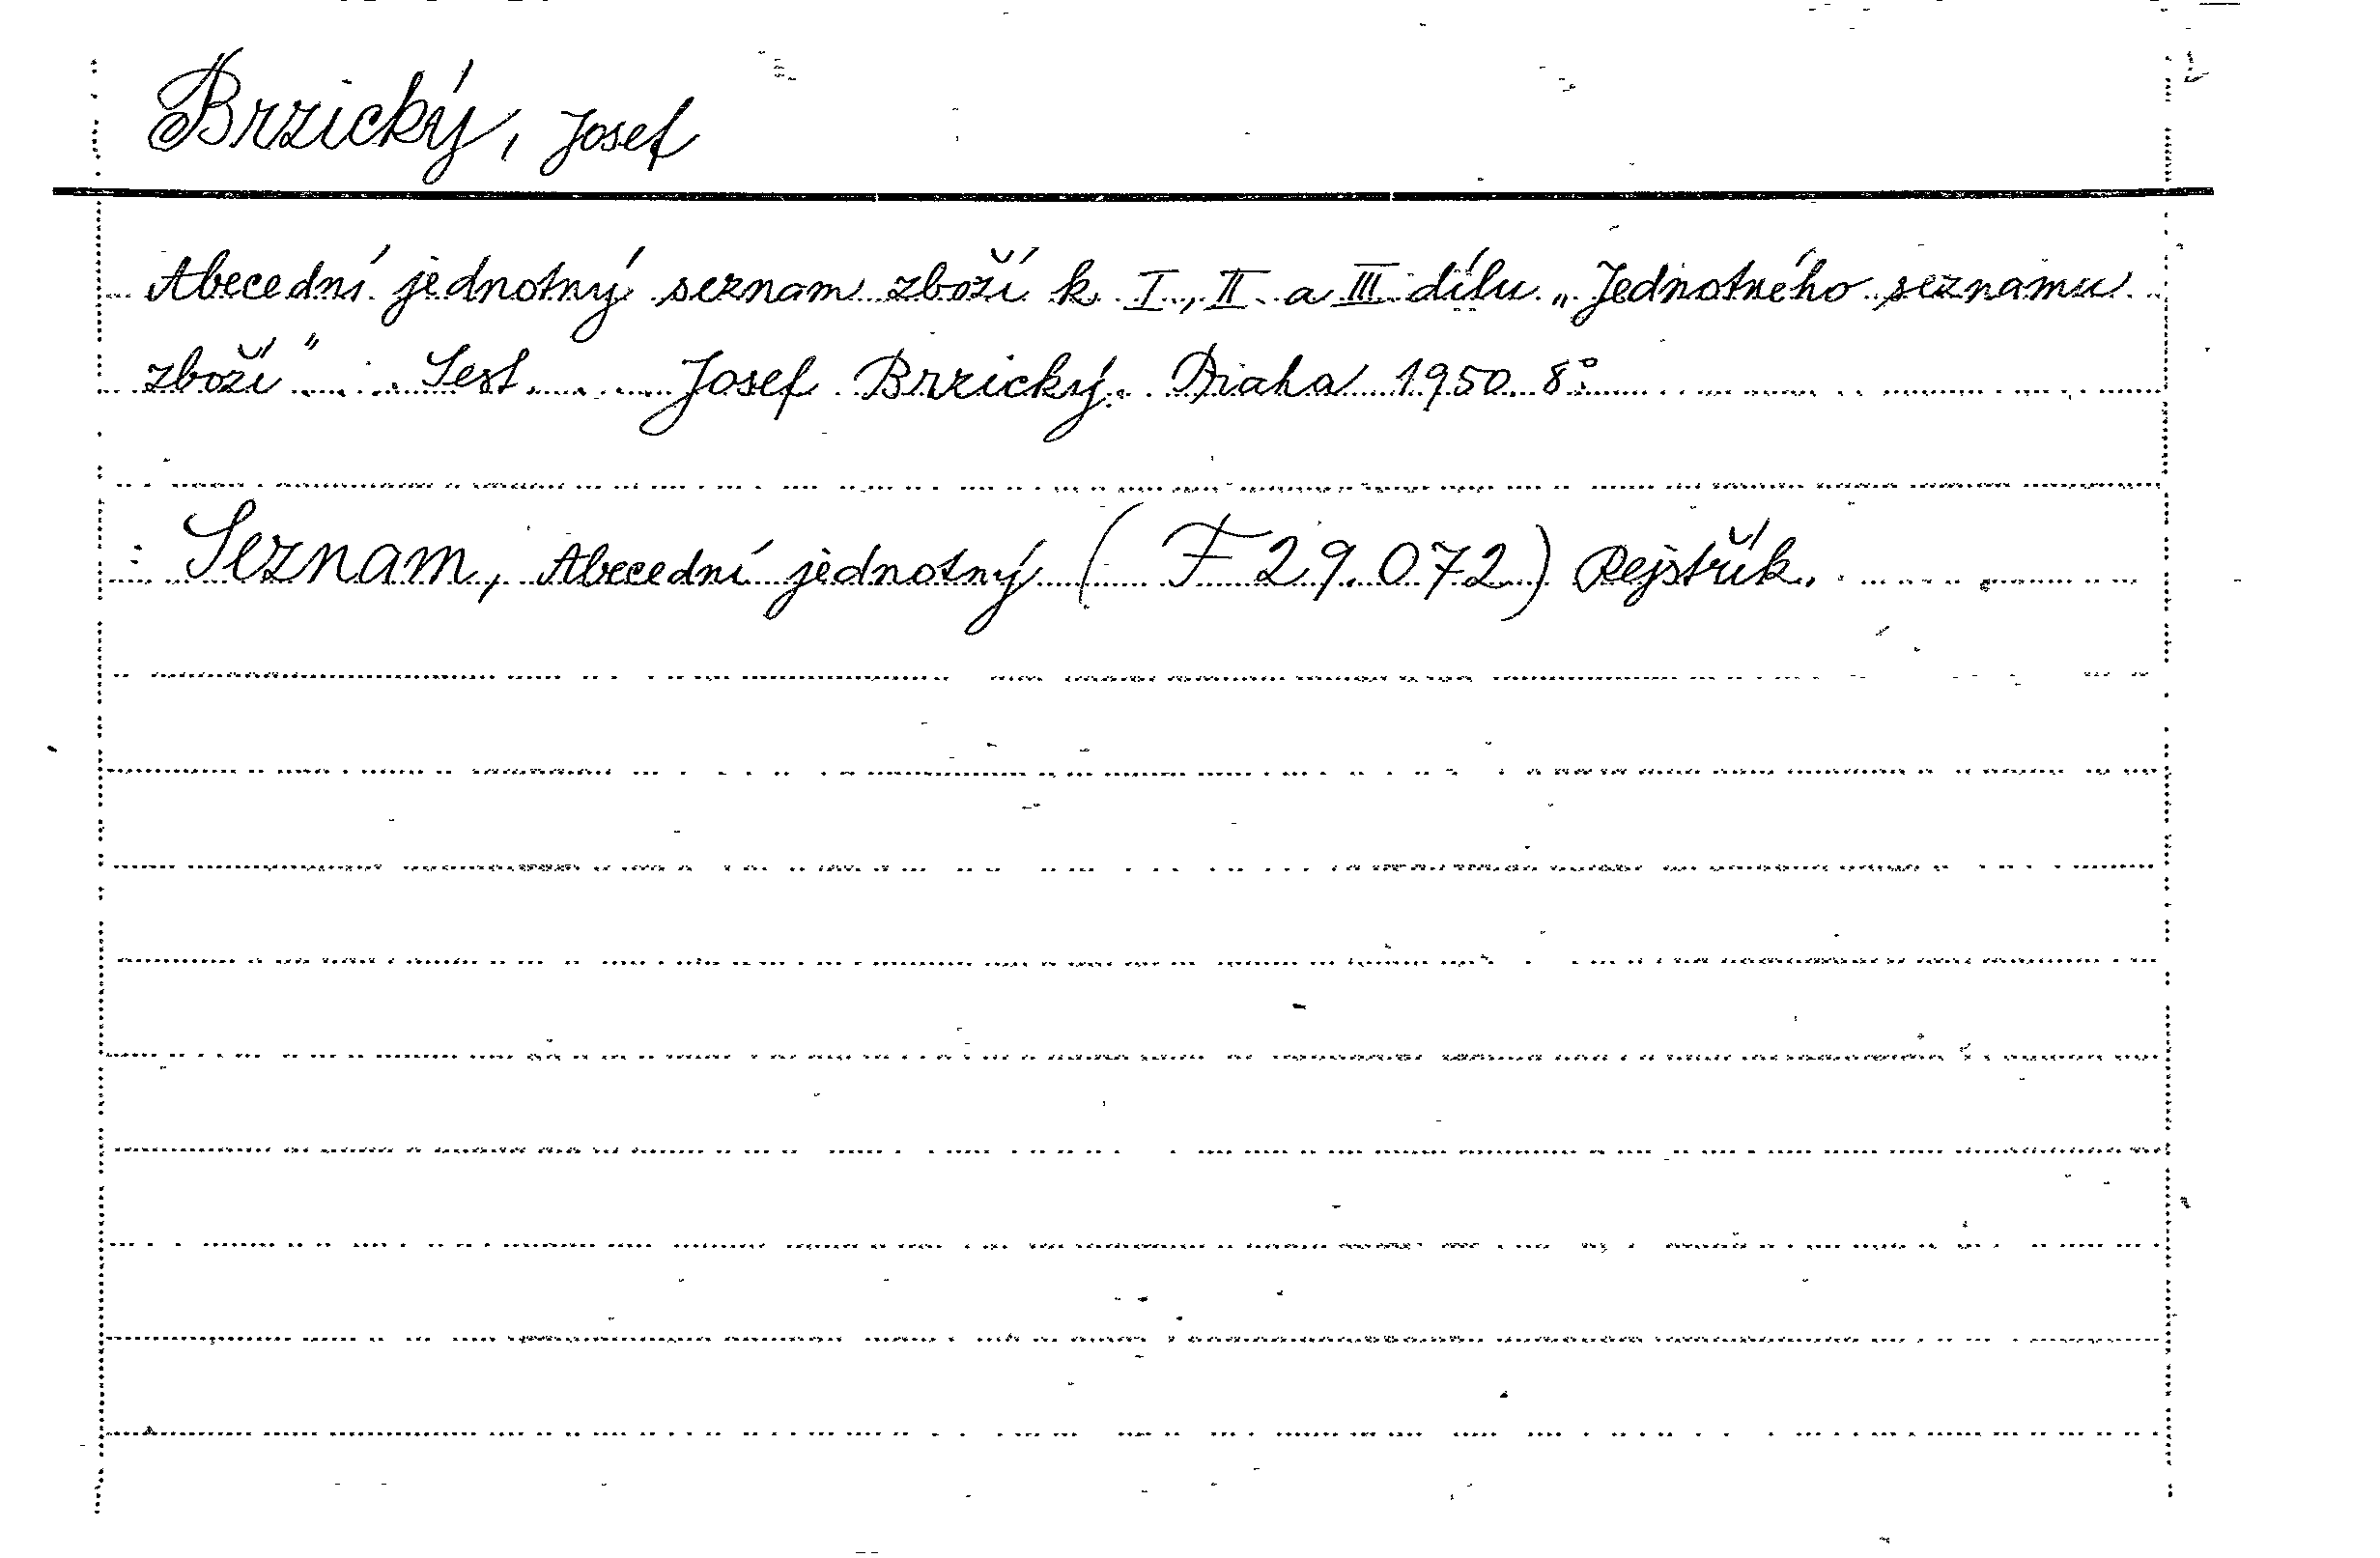 Brzický, Josef
Abecední jednotný seznam zboží k I., II. a III. dílu „Jednotného seznamu
zboží". Sest. Josef Brzický. Praha 1950. 8°.
: Seznam, Abecední jednotný (F 29.072) Rejstřík.